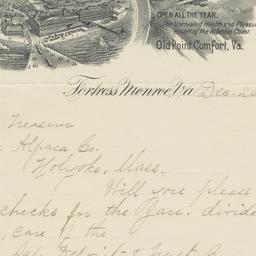 OPEN ALL THE YEAR.
The Unrivaled Health and Pleasure
resort of the Atlantic Coast
Old Point Comfort, Va.
Fortress Monroe, Va. Dec. 2
Treasurer
Alpaca Co.
Holyoke, Mass.
Will you please
checks for the Jan. divide
care of the
Deposit &